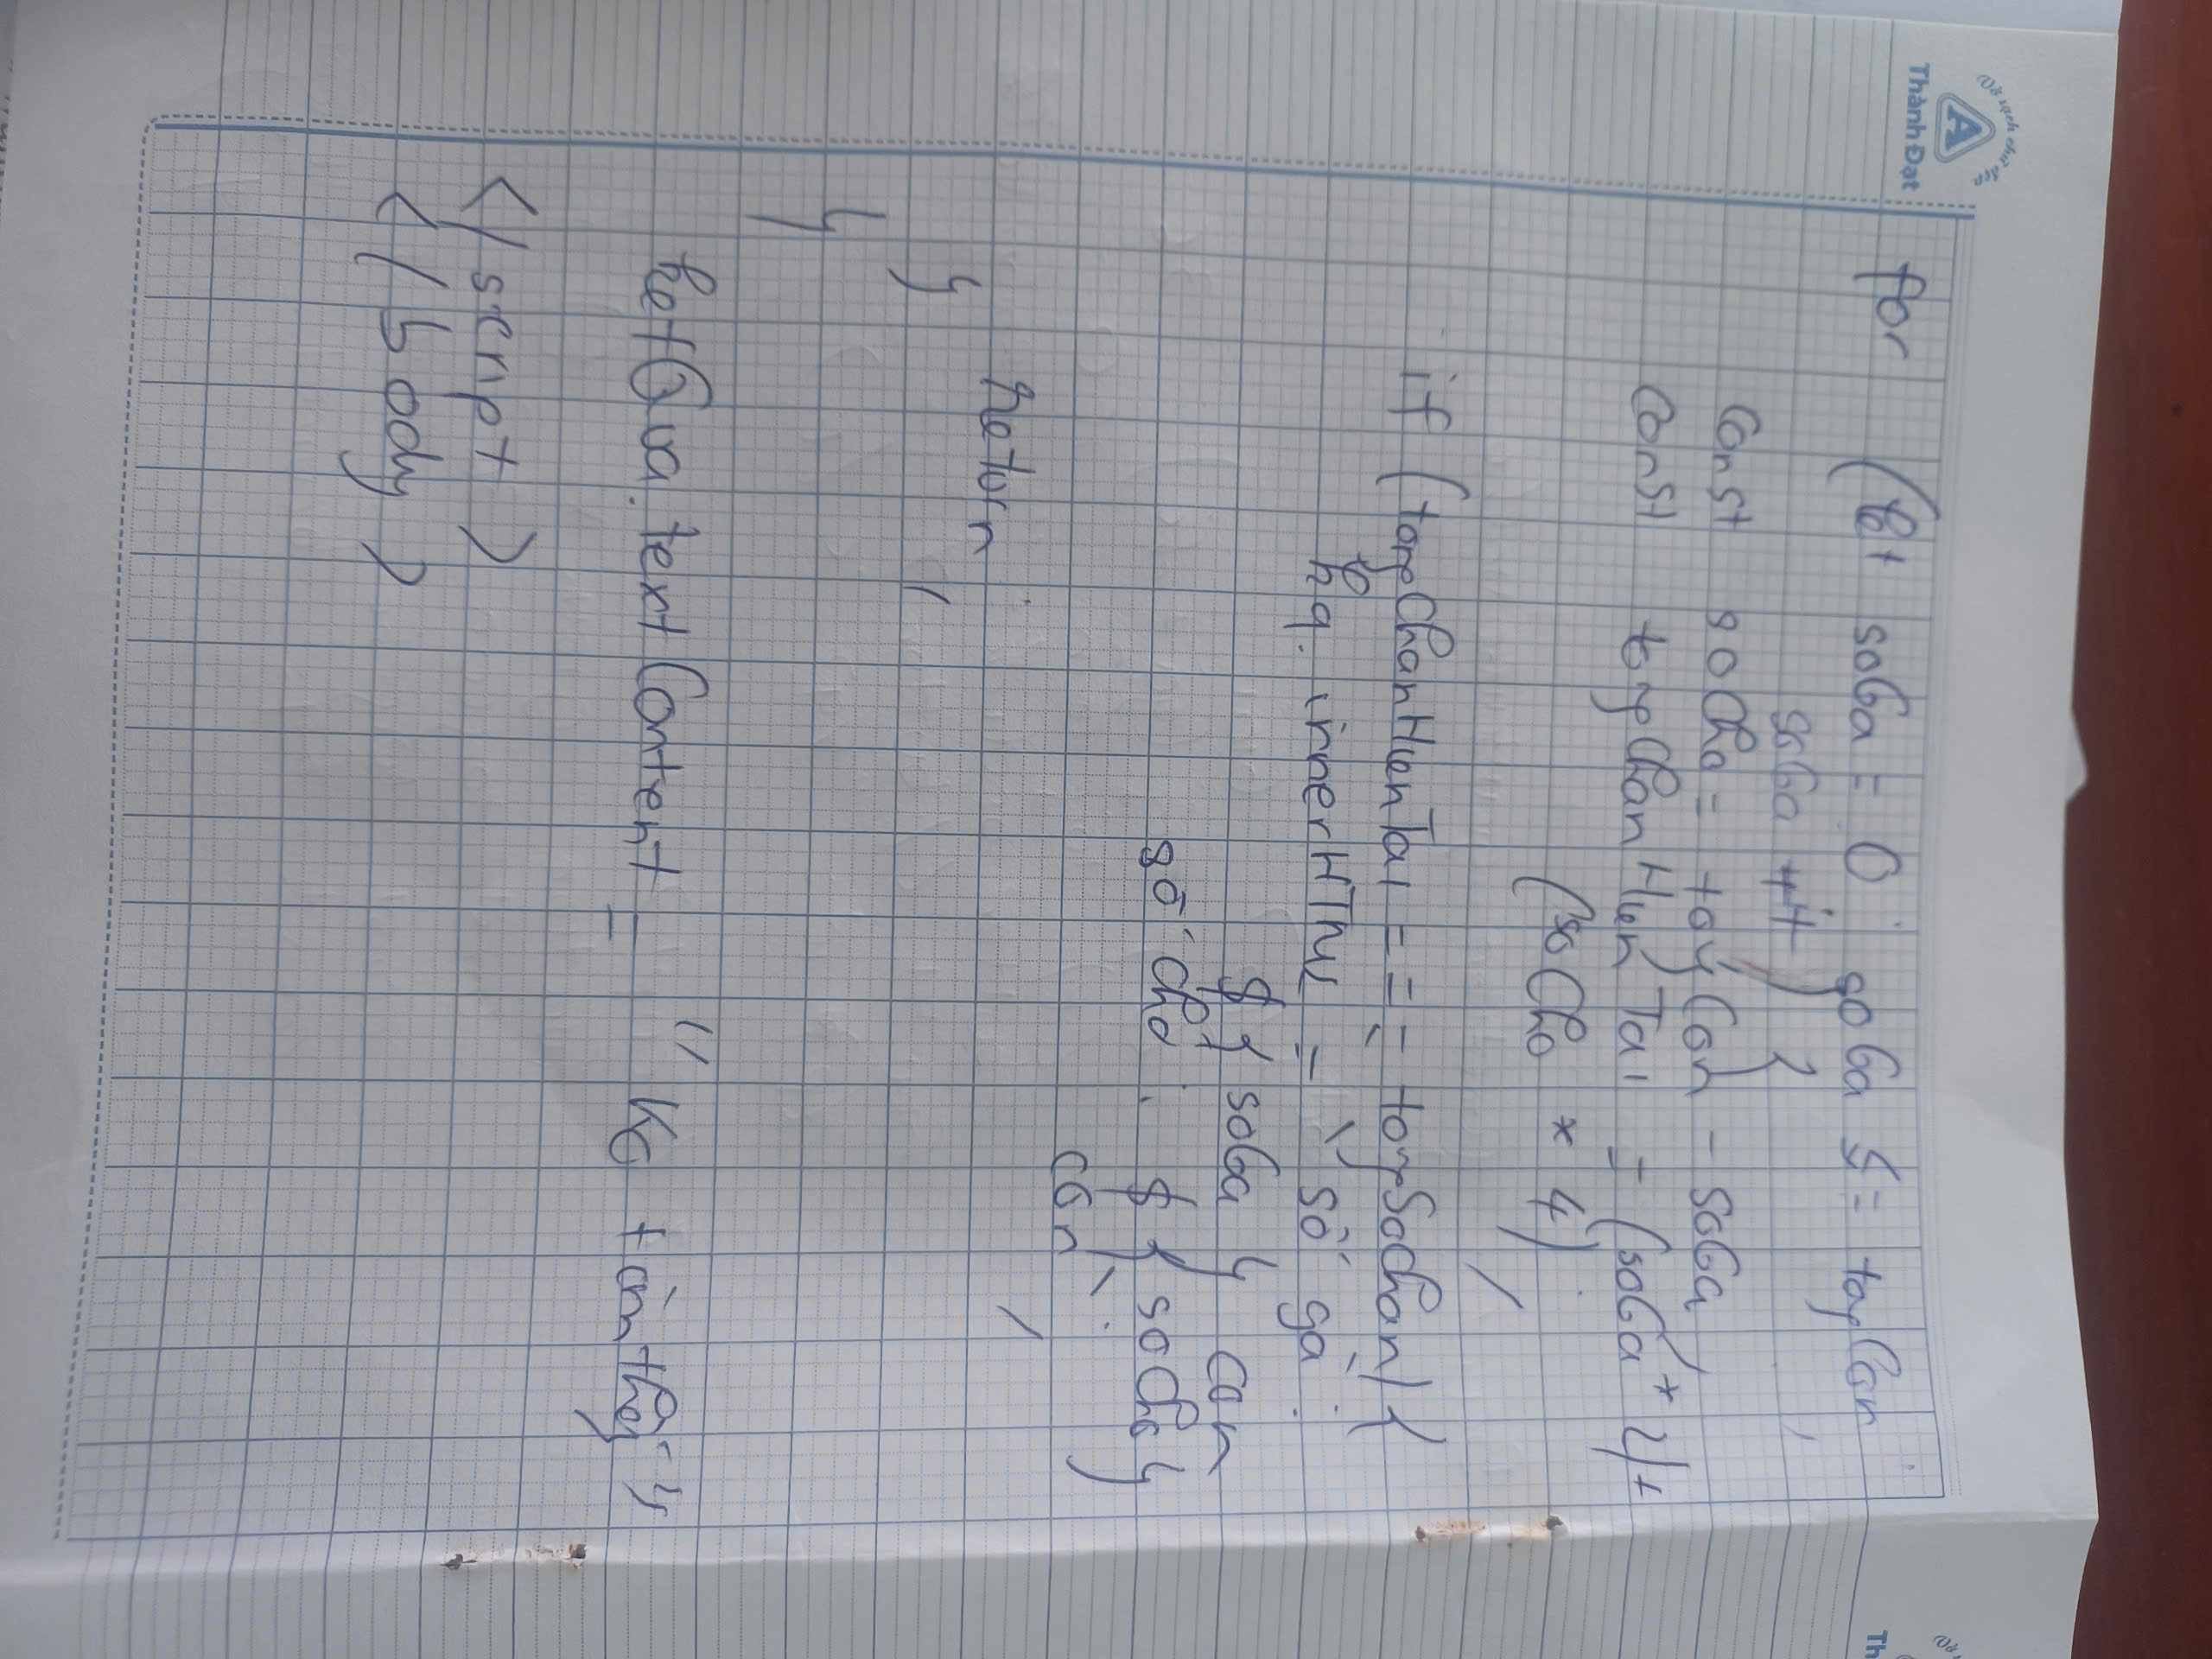 Vở sạch chữ đẹp
Thành Đạt
for (let soGa = 0; soGa <= tongCon;
soGa ++) {
const soCho = tongCon - soGa
const tongChanHienTai = (soGa * 2) +
(soCho * 4);
if (tongChanHienTai === tongSoChan) {
kq.innerHTML = `Số gà:
${soGa} con
số chó: ${soCho}
con`;
return;
}
}
ketQua.textContent = "Ko tìm thấy";
</script>
</body>
Th